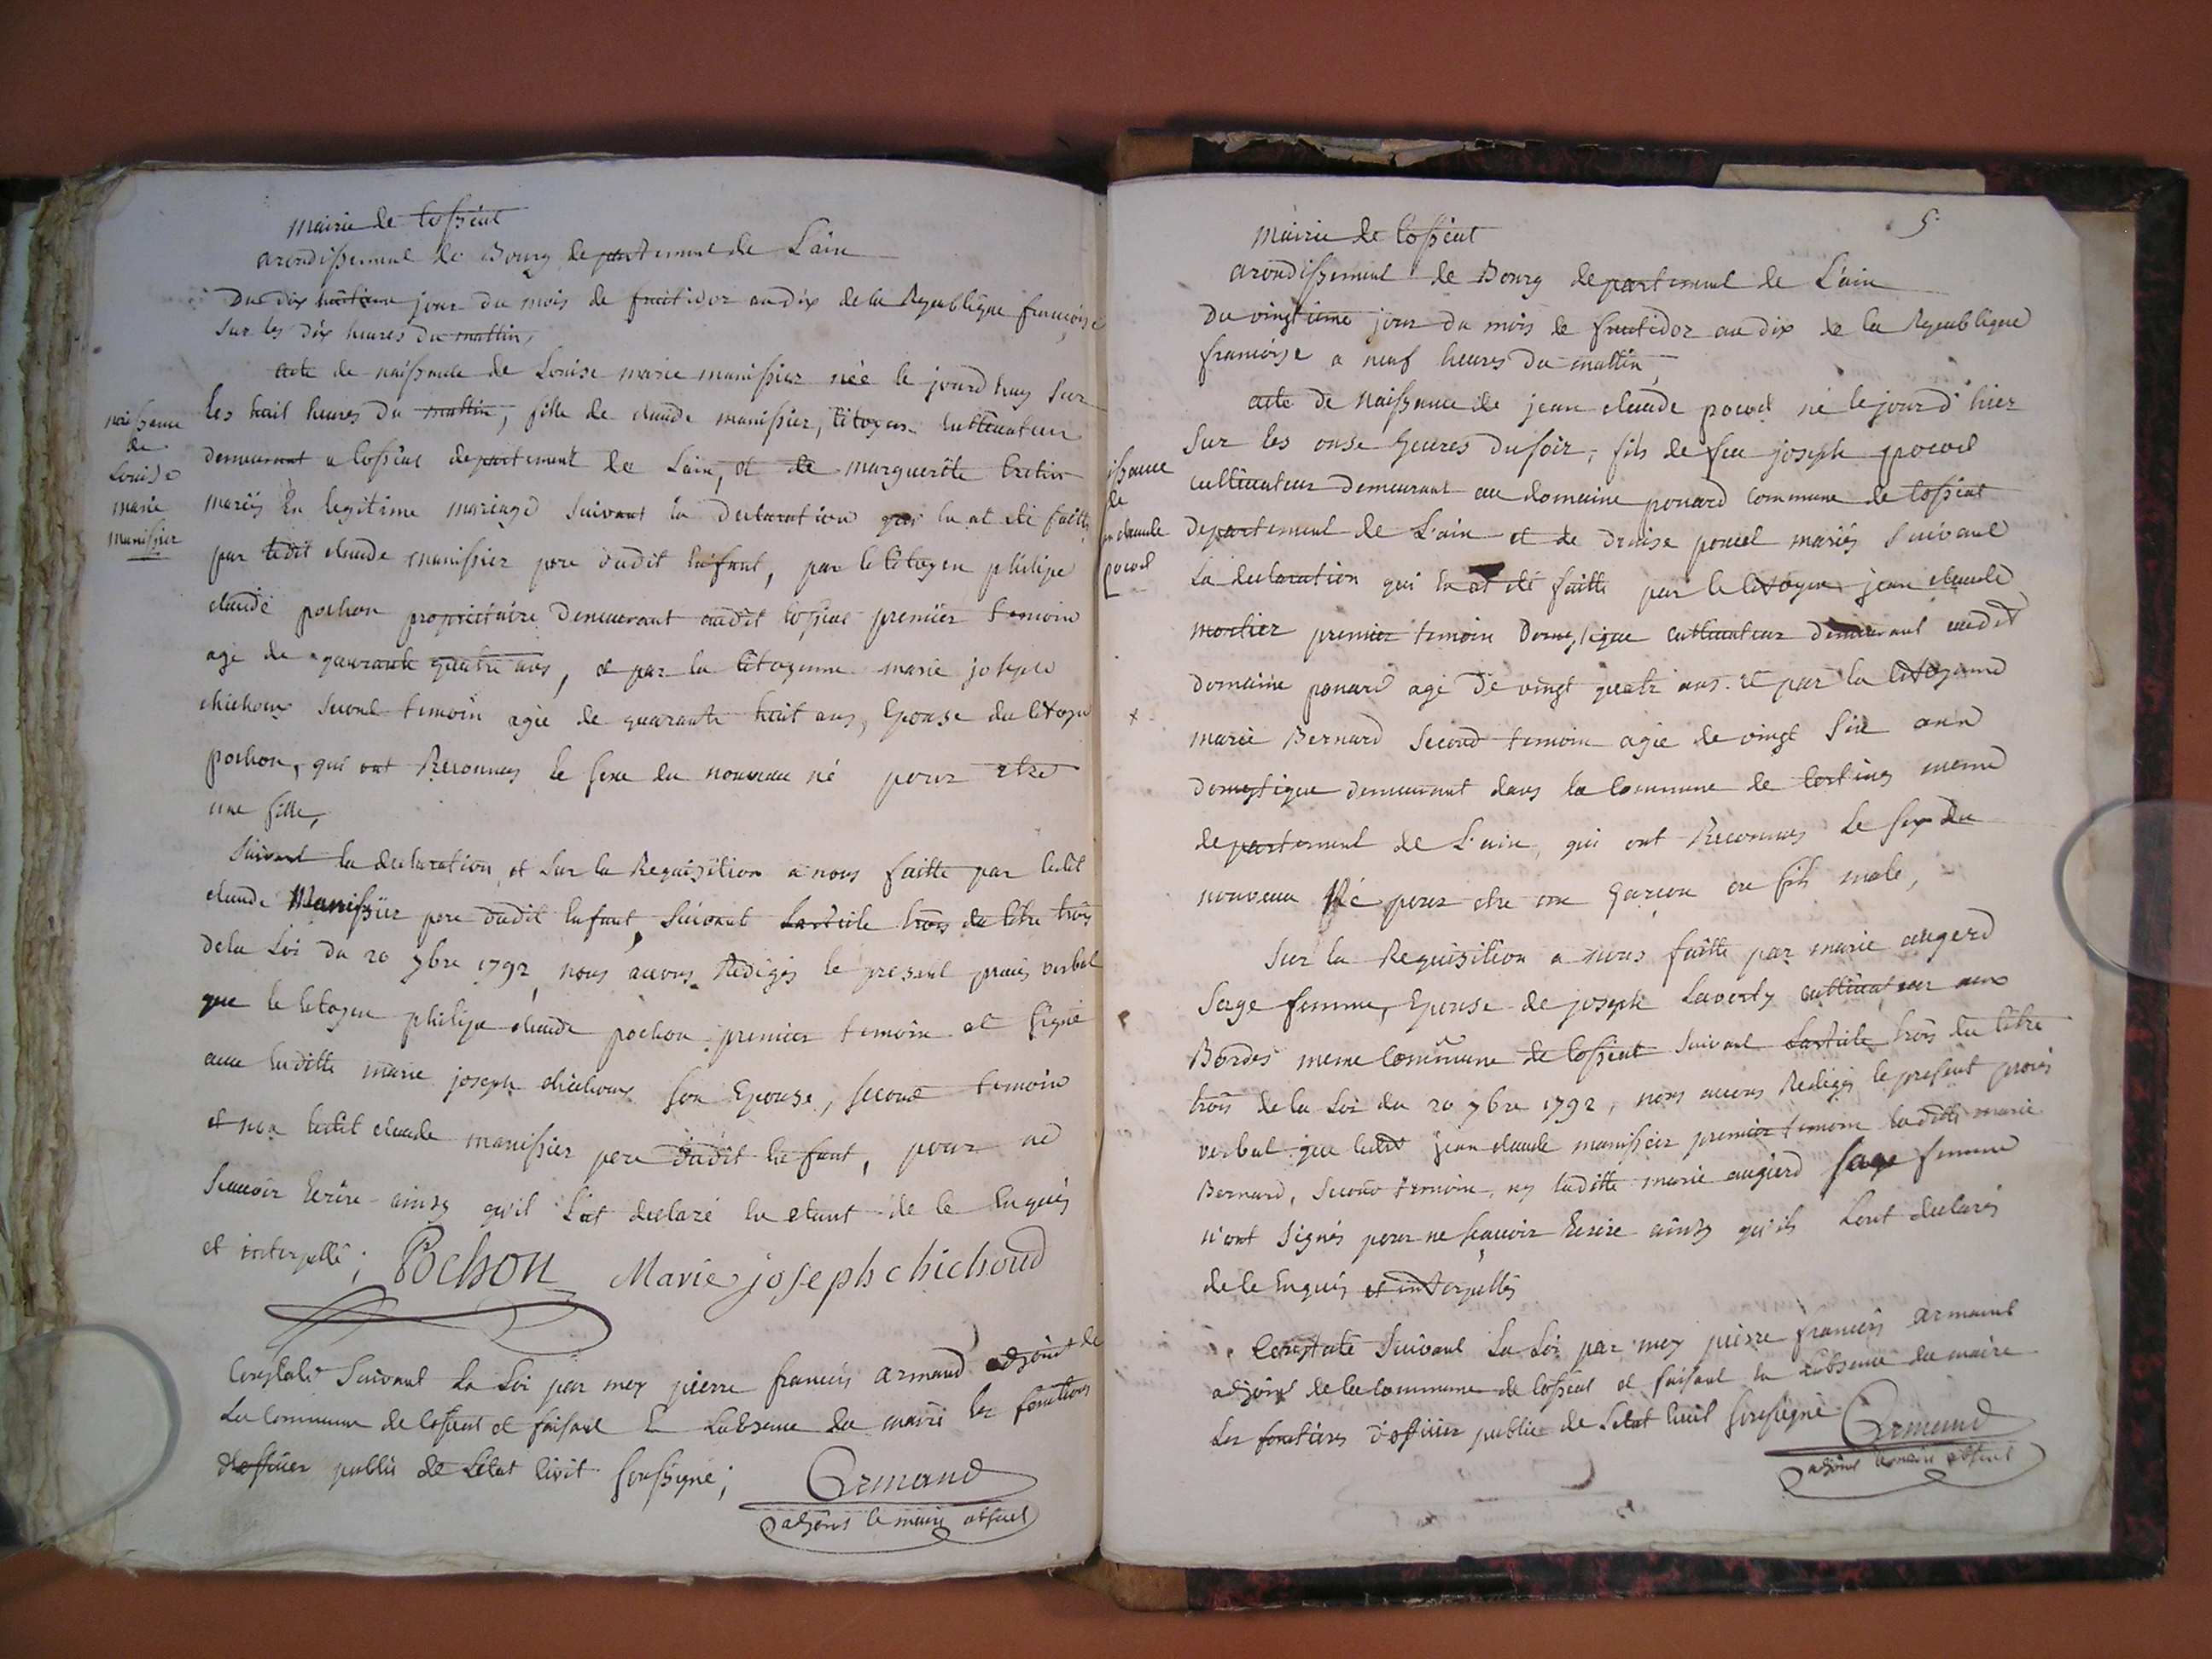 mairie de Cossieut
arondissement de Bourg departement de L'ain
Du dix huitieme jour du mois de fruitidor an dix de la Republique françoise
sur les dix heures du mattin,
acte de naissance de Louise marie manissier née le jourd huy sur
les huit heures du mattin, fille de claude manissier, citoyen cultivateur
demeurant a Cossieut departement de Lain, et de marguerite
mariés En legitime mariage suivant la declaration qui en at été faitte
par ledit claude manissier pere dudit Enfant, par le citoyen philipe
claude pochon propriétaire demeurant audit Cossieut premier temoin
agé de quarante quatre ans, et par la citoyenne marie joseph
chichoux second temoin agée de quarante huit ans, Epouse du citoyen
pochon, qui ont Reconnus le sexe du nouveau né pour etre
une fille,
Suivant la declaration, et sur la Requisition a nous faitte par ledit
claude Manissier pere dudit Enfant, suivant Larticle trois du titre trois
de la Loi du 20 7bre 1792, nous avons Redigés le present procès verbal
que le citoyen philipe claude pochon premier temoin at signé
avec laditte marie joseph chichoux son Epouse, second temoin
et non ledit claude manissier pere dudit Enfant, pour ne
scavoir Ecrire ainsy qu'il L'at declaré en etant de ce Enquis
et interpellé; Pochon Marie joseph chichoud
Constaté Suivant La Loi par moy pierre francois armand adjoint de
La Commune de Cossieut et faisant En Labsence du maire les fonctions
dofficier public de Letat civil soussigné; Armand
adjoint le maire absent
naissance
de
Louise
marie
manissier
5
mairie de Cossieut
arondissement de Bourg departement de L'ain
Du vingtieme jour du mois de fructidor an dix de la Republique
francoise a neuf heures du mattin,
acte de Naissance de jean claude pocod né le jour d'hier
sur les onse heures du soir, fils de feu joseph pocod
cultivateur demeurant au domaine ponard commune de Cossieut
departement de L'ain et de mariés suivant
La declaration qui en at été faitte par le citoyen jean claude
premier temoin Domestique cultivateur demeurant audit
domaine ponard agé de vingt quatre ans. et par la citoyenne
marie Bernard second temoin agée de vingt six ans
domestique demeurant dans la Commune de Certines meme
departement de L'ain, qui ont Reconnus Le sex du
nouveau Né pour etre un garcon ou fils male,
Sur la Requisition a nous faitte par marie augerd
Sage femme, Epouse de joseph cultivateur aux
Bordes meme Commune de Cossieut suivant Larticle trois du titre
trois de la Loi du 20 7bre 1792, nous avons Redigés le present procès
verbal que ledit jean claude manissier premier temoin laditte marie
Bernard, second temoin, ny laditte marie augierd sage femme
n'ont signés pour ne scavoir Ecrire ainsy qu'ils Lont declarés
de ce Enquis et interpellés
Constaté Suivant La Loi par moy pierre francois armand
adjoint de la commune de Cossieut et faisant En Labsence du maire
Les fonctions d'officier public de Letat civil soussigné Armand
adjoint le maire absent
issance
de
claude
pocod